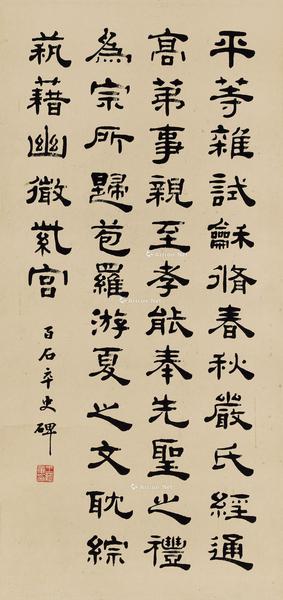 平等雜試龢脩春秋嚴氏經通
高苐事親至孝能奉先聖之禮
為宗所歸苞羅游夏之文耽綜
蓺藉幽徵㲉宮
百石卒史碑